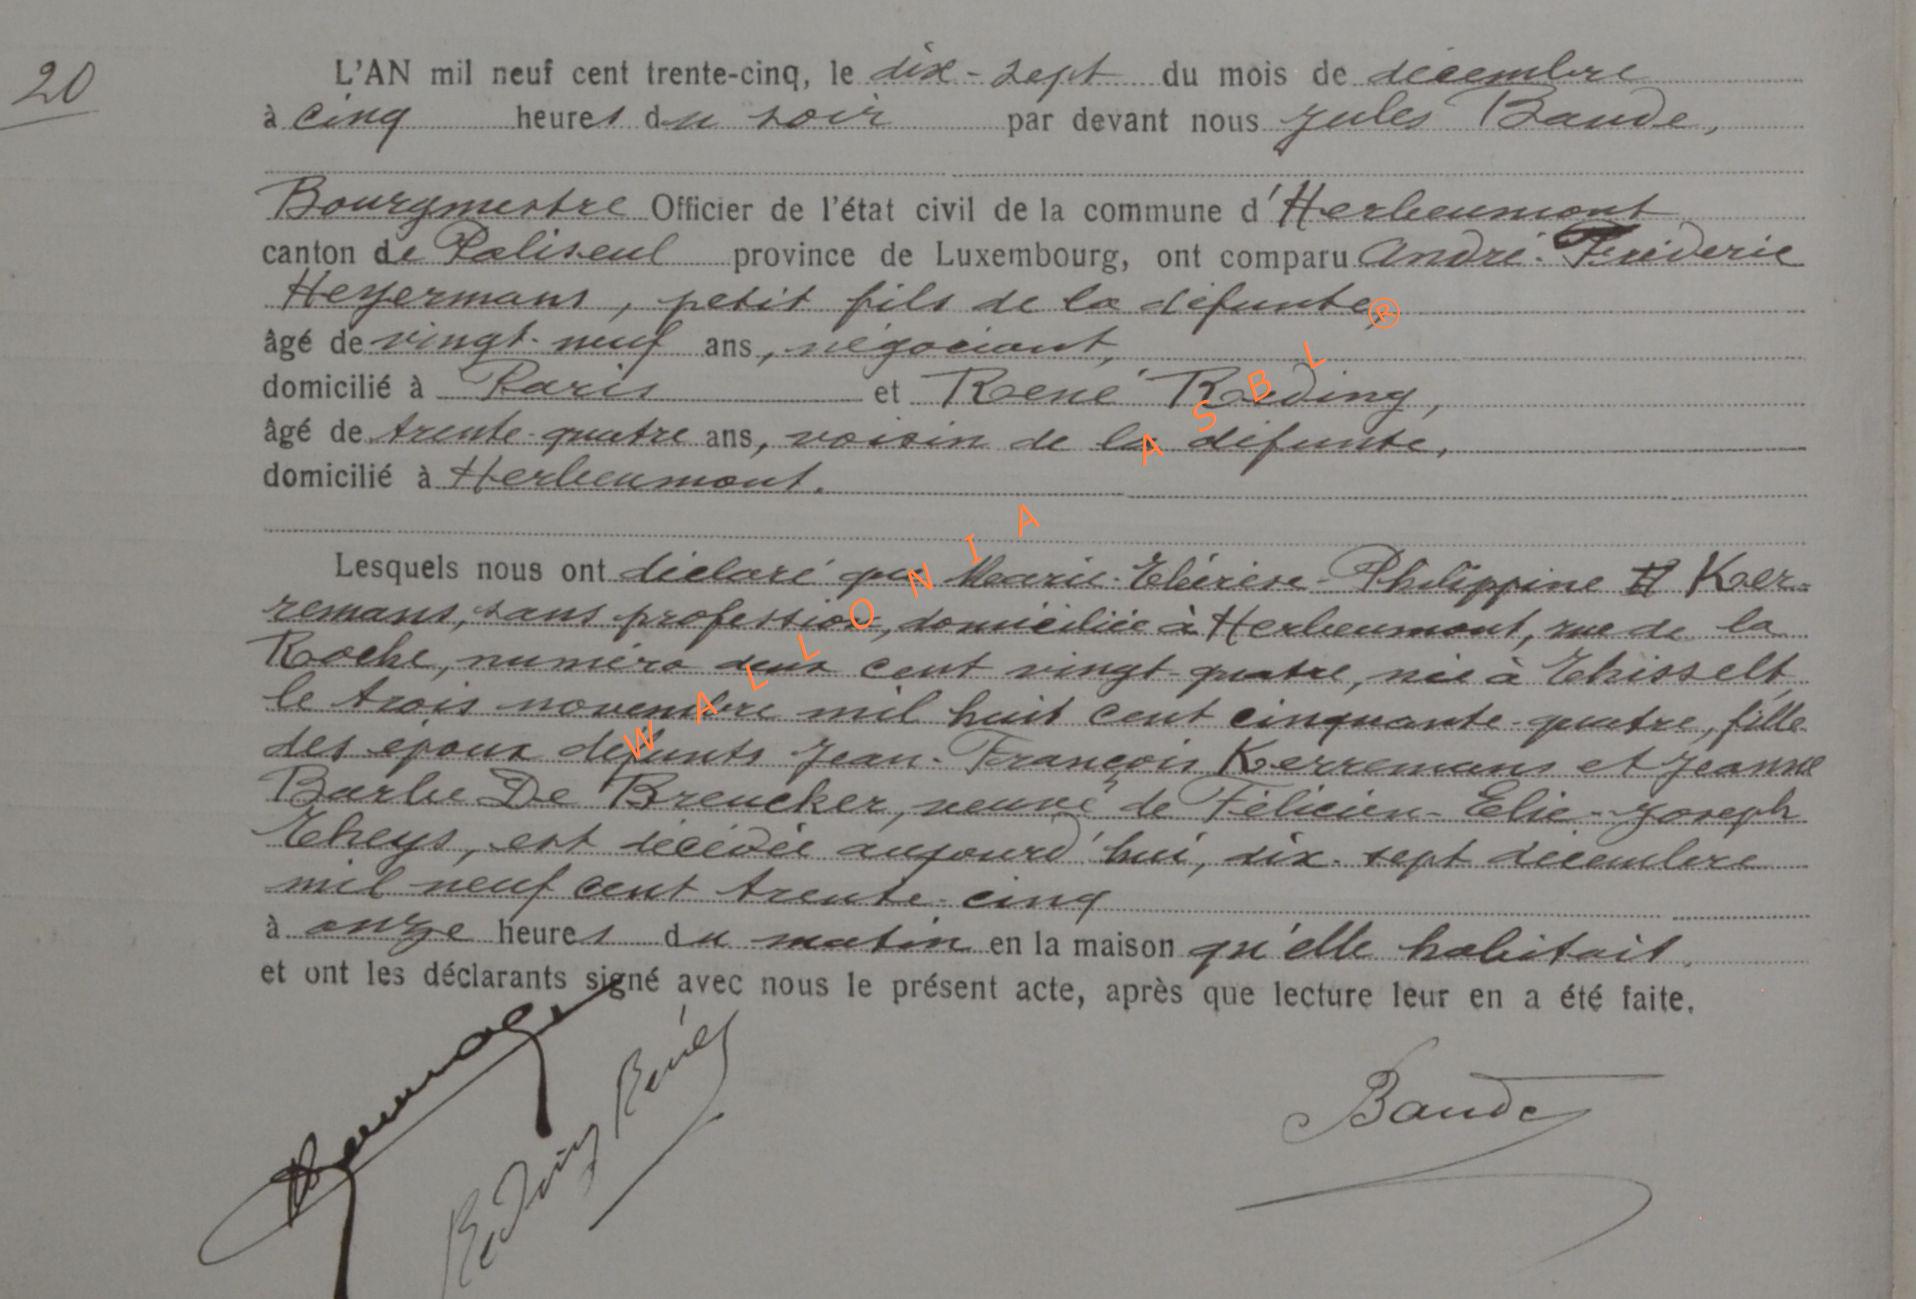 20
L'AN mil neuf cent trente-cinq, le dix-sept du mois de décembre
à cinq heures du soir par devant nous Jules Baude,
Bourgmestre Officier de l'état civil de la commune d'Herbeumont
canton de Paliseul province de Luxembourg, ont comparu André-Fréderic
Heyermans, petit fils de la défunte,
âgé de vingt-neuf ans, négociant,
domicilié à Paris et René Reding,
âgé de trente-quatre ans, voisin de la défunte,
domicilié à Herbeumont.
Lesquels nous ont déclaré que Marie-Thérèse-Philippine Ker-
remans, sans profession, domiciliée à Herbeumont, rue de la
Roche, numéro deux cent vingt-quatre, née à Thisselt
le trois novembre mil huit cent cinquante-quatre, fille
des époux défunts Jean-François Kerremans et Jeanne
Barbe De Breucker, veuve de Félicien-Elie-Joseph
Theys, est décédée aujourd'hui, dix-sept décembre
mil neuf cent trente-cinq
à onze heures du matin en la maison qu'elle habitait.
et ont les déclarants signé avec nous le présent acte, après que lecture leur en a été faite.
Reding René
Baude
WALLONIA ASBL ®